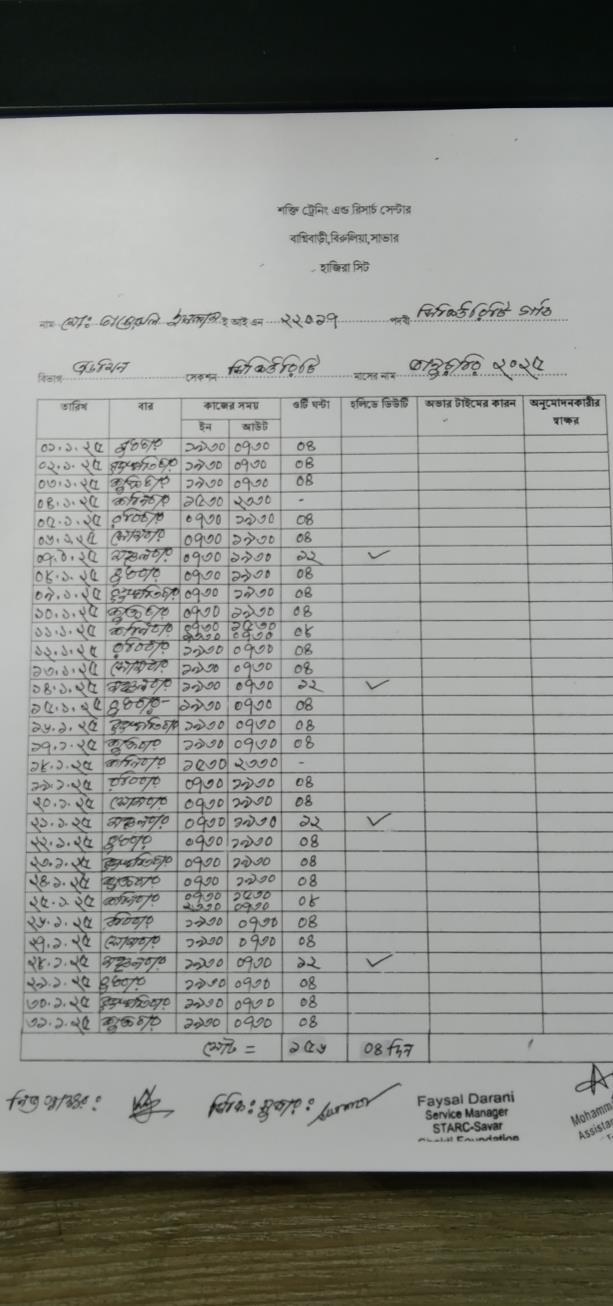 শক্তি ট্রেনিং এন্ড রিসার্চ সেন্টার
বাগ্নিবাড়ী,বিরুলিয়া,সাভার
হাজিরা সিট
নাম মোঃ ই আই এন ২২০১৭ পদবী সিকিউরিটি গার্ড
বিভাগ এডমিন সেকশন সিকিউরিটি মাসের নাম জানুয়ারি ২০২৫
তারিখ বার কাজের সময় ওটি ঘন্টা হলিডে ডিউটি অভার টাইমের কারন অনুমোদনকারীর স্বাক্ষর
ইন আউট
০১.১.২৫ বুধবার ১৯৩০ ০৭৩০ ০৪
০২.১.২৫ বৃহস্পতিবার ১৯৩০ ০৭৩০ ০৪
০৩.১.২৫ শুক্রবার ১৯৩০ ০৭৩০ ০৪
০৪.১.২৫ শনিবার ১৫৩০ ২৩৩০ -
০৫.১.২৫ রবিবার ০৭৩০ ১৯৩০ ০৪
০৬.১.২৫ সোমবার ০৭৩০ ১৯৩০ ০৪
০৭.১.২৫ মঙ্গলবার ০৭৩০ ১৯৩০ ১২ ✓
০৮.১.২৫ বুধবার ০৭৩০ ১৯৩০ ০৪
০৯.১.২৫ বৃহস্পতিবার ০৭৩০ ১৯৩০ ০৪
১০.১.২৫ শুক্রবার ০৭৩০ ১৯৩০ ০৪
১১.১.২৫ শনিবার ০৭৩০ ১৫৩০ ০৮
২৩৩০ ০৭৩০
১২.১.২৫ রবিবার ১৯৩০ ০৭৩০ ০৪
১৩.১.২৫ সোমবার ১৯৩০ ০৭৩০ ০৪
১৪.১.২৫ মঙ্গলবার ১৯৩০ ০৭৩০ ১২ ✓
১৫.১.২৫ বুধবার ১৯৩০ ০৭৩০ ০৪
১৬.১.২৫ বৃহস্পতিবার ১৯৩০ ০৭৩০ ০৪
১৭.১.২৫ শুক্রবার ১৯৩০ ০৭৩০ ০৪
১৮.১.২৫ শনিবার ১৫৩০ ২৩৩০ -
১৯.১.২৫ রবিবার ০৭৩০ ১৯৩০ ০৪
২০.১.২৫ সোমবার ০৭৩০ ১৯৩০ ০৪
২১.১.২৫ মঙ্গলবার ০৭৩০ ১৯৩০ ১২ ✓
২২.১.২৫ বুধবার ০৭৩০ ১৯৩০ ০৪
২৩.১.২৫ বৃহস্পতিবার ০৭৩০ ১৯৩০ ০৪
২৪.১.২৫ শুক্রবার ০৭৩০ ১৯৩০ ০৪
২৫.১.২৫ শনিবার ০৭৩০ ১৫৩০ ০৮
২৩৩০ ০৭৩০
২৬.১.২৫ রবিবার ১৯৩০ ০৭৩০ ০৪
২৭.১.২৫ সোমবার ১৯৩০ ০৭৩০ ০৪
২৮.১.২৫ মঙ্গলবার ১৯৩০ ০৭৩০ ১২ ✓
২৯.১.২৫ বুধবার ১৯৩০ ০৭৩০ ০৪
৩০.১.২৫ বৃহস্পতিবার ১৯৩০ ০৭৩০ ০৪
৩১.১.২৫ শুক্রবার ১৯৩০ ০৭৩০ ০৪
মোট = ১৫৬ ০৪ দিন
নিজ স্বাক্ষর: সিকি: সুপার:
Faysal Darani
Service Manager
STARC-Savar
Shakti Foundation